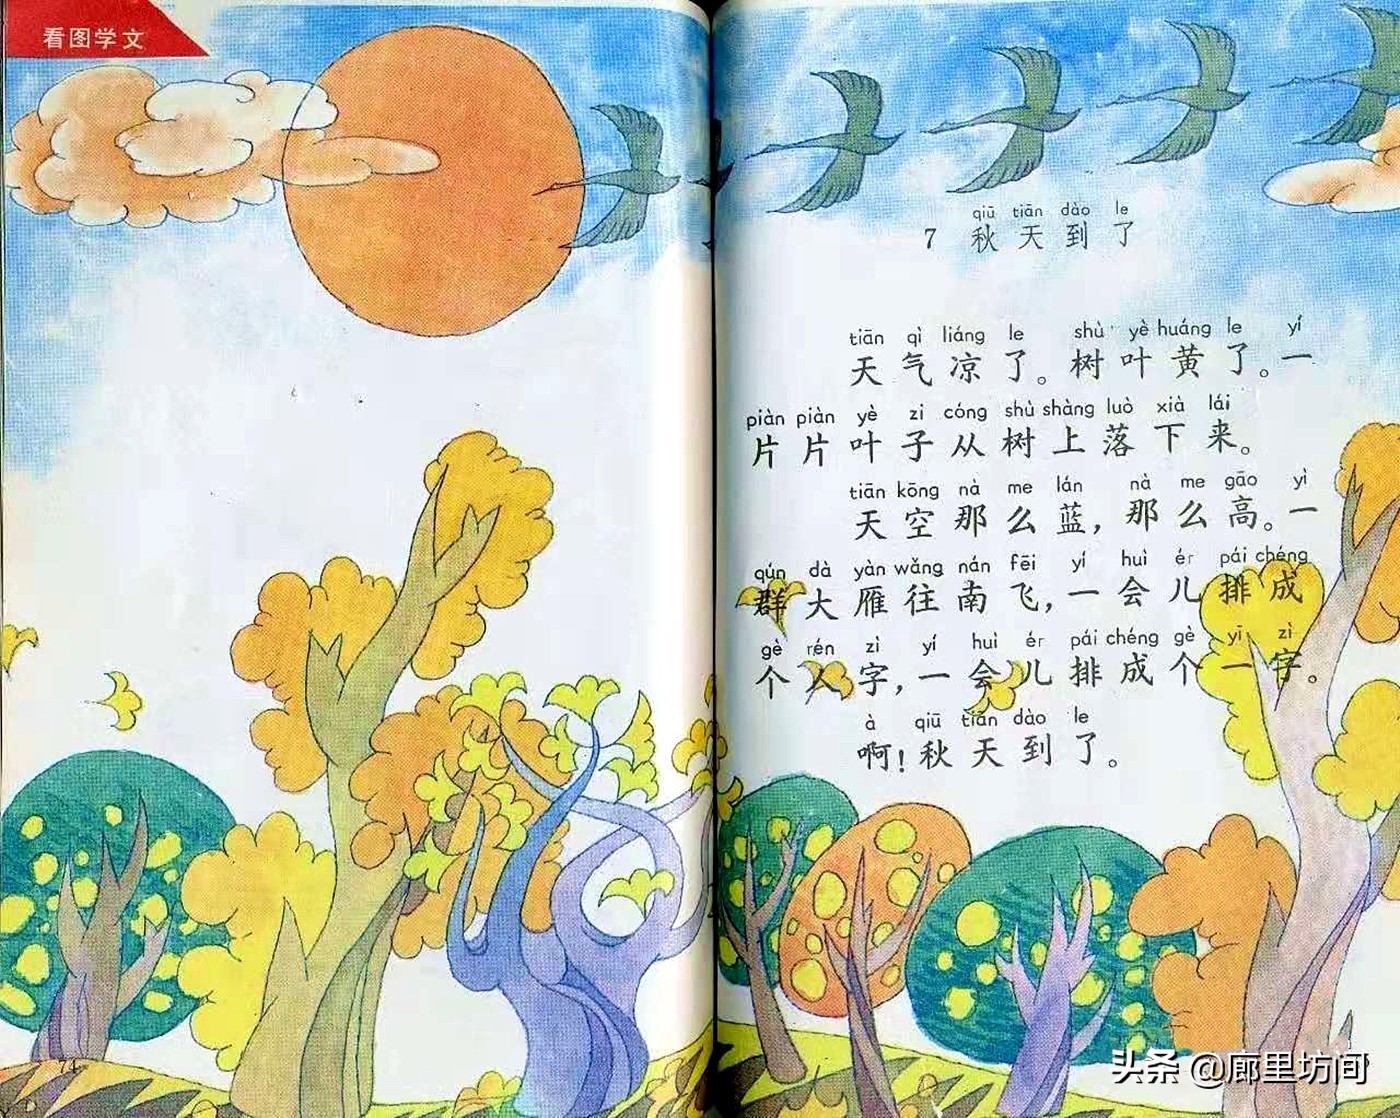 看图学文
qiū tiān dào le
7 秋天到了
tiān qì liáng le shù yè huáng le yí
天气凉了。树叶黄了。一
piàn piàn yè zi cóng shù shàng luò xià lái
片片叶子从树上落下来。
tiān kōng nà me lán nà me gāo yì
天空那么蓝，那么高。一
qún dà yàn wǎng nán fēi yí huì ér pái chéng
群大雁往南飞，一会儿排成
gè rén zì yí huì ér pái chéng gè yī zì
个人字，一会儿排成个一字。
à qiū tiān dào le
啊！秋天到了。
74
头条 @廊里坊间